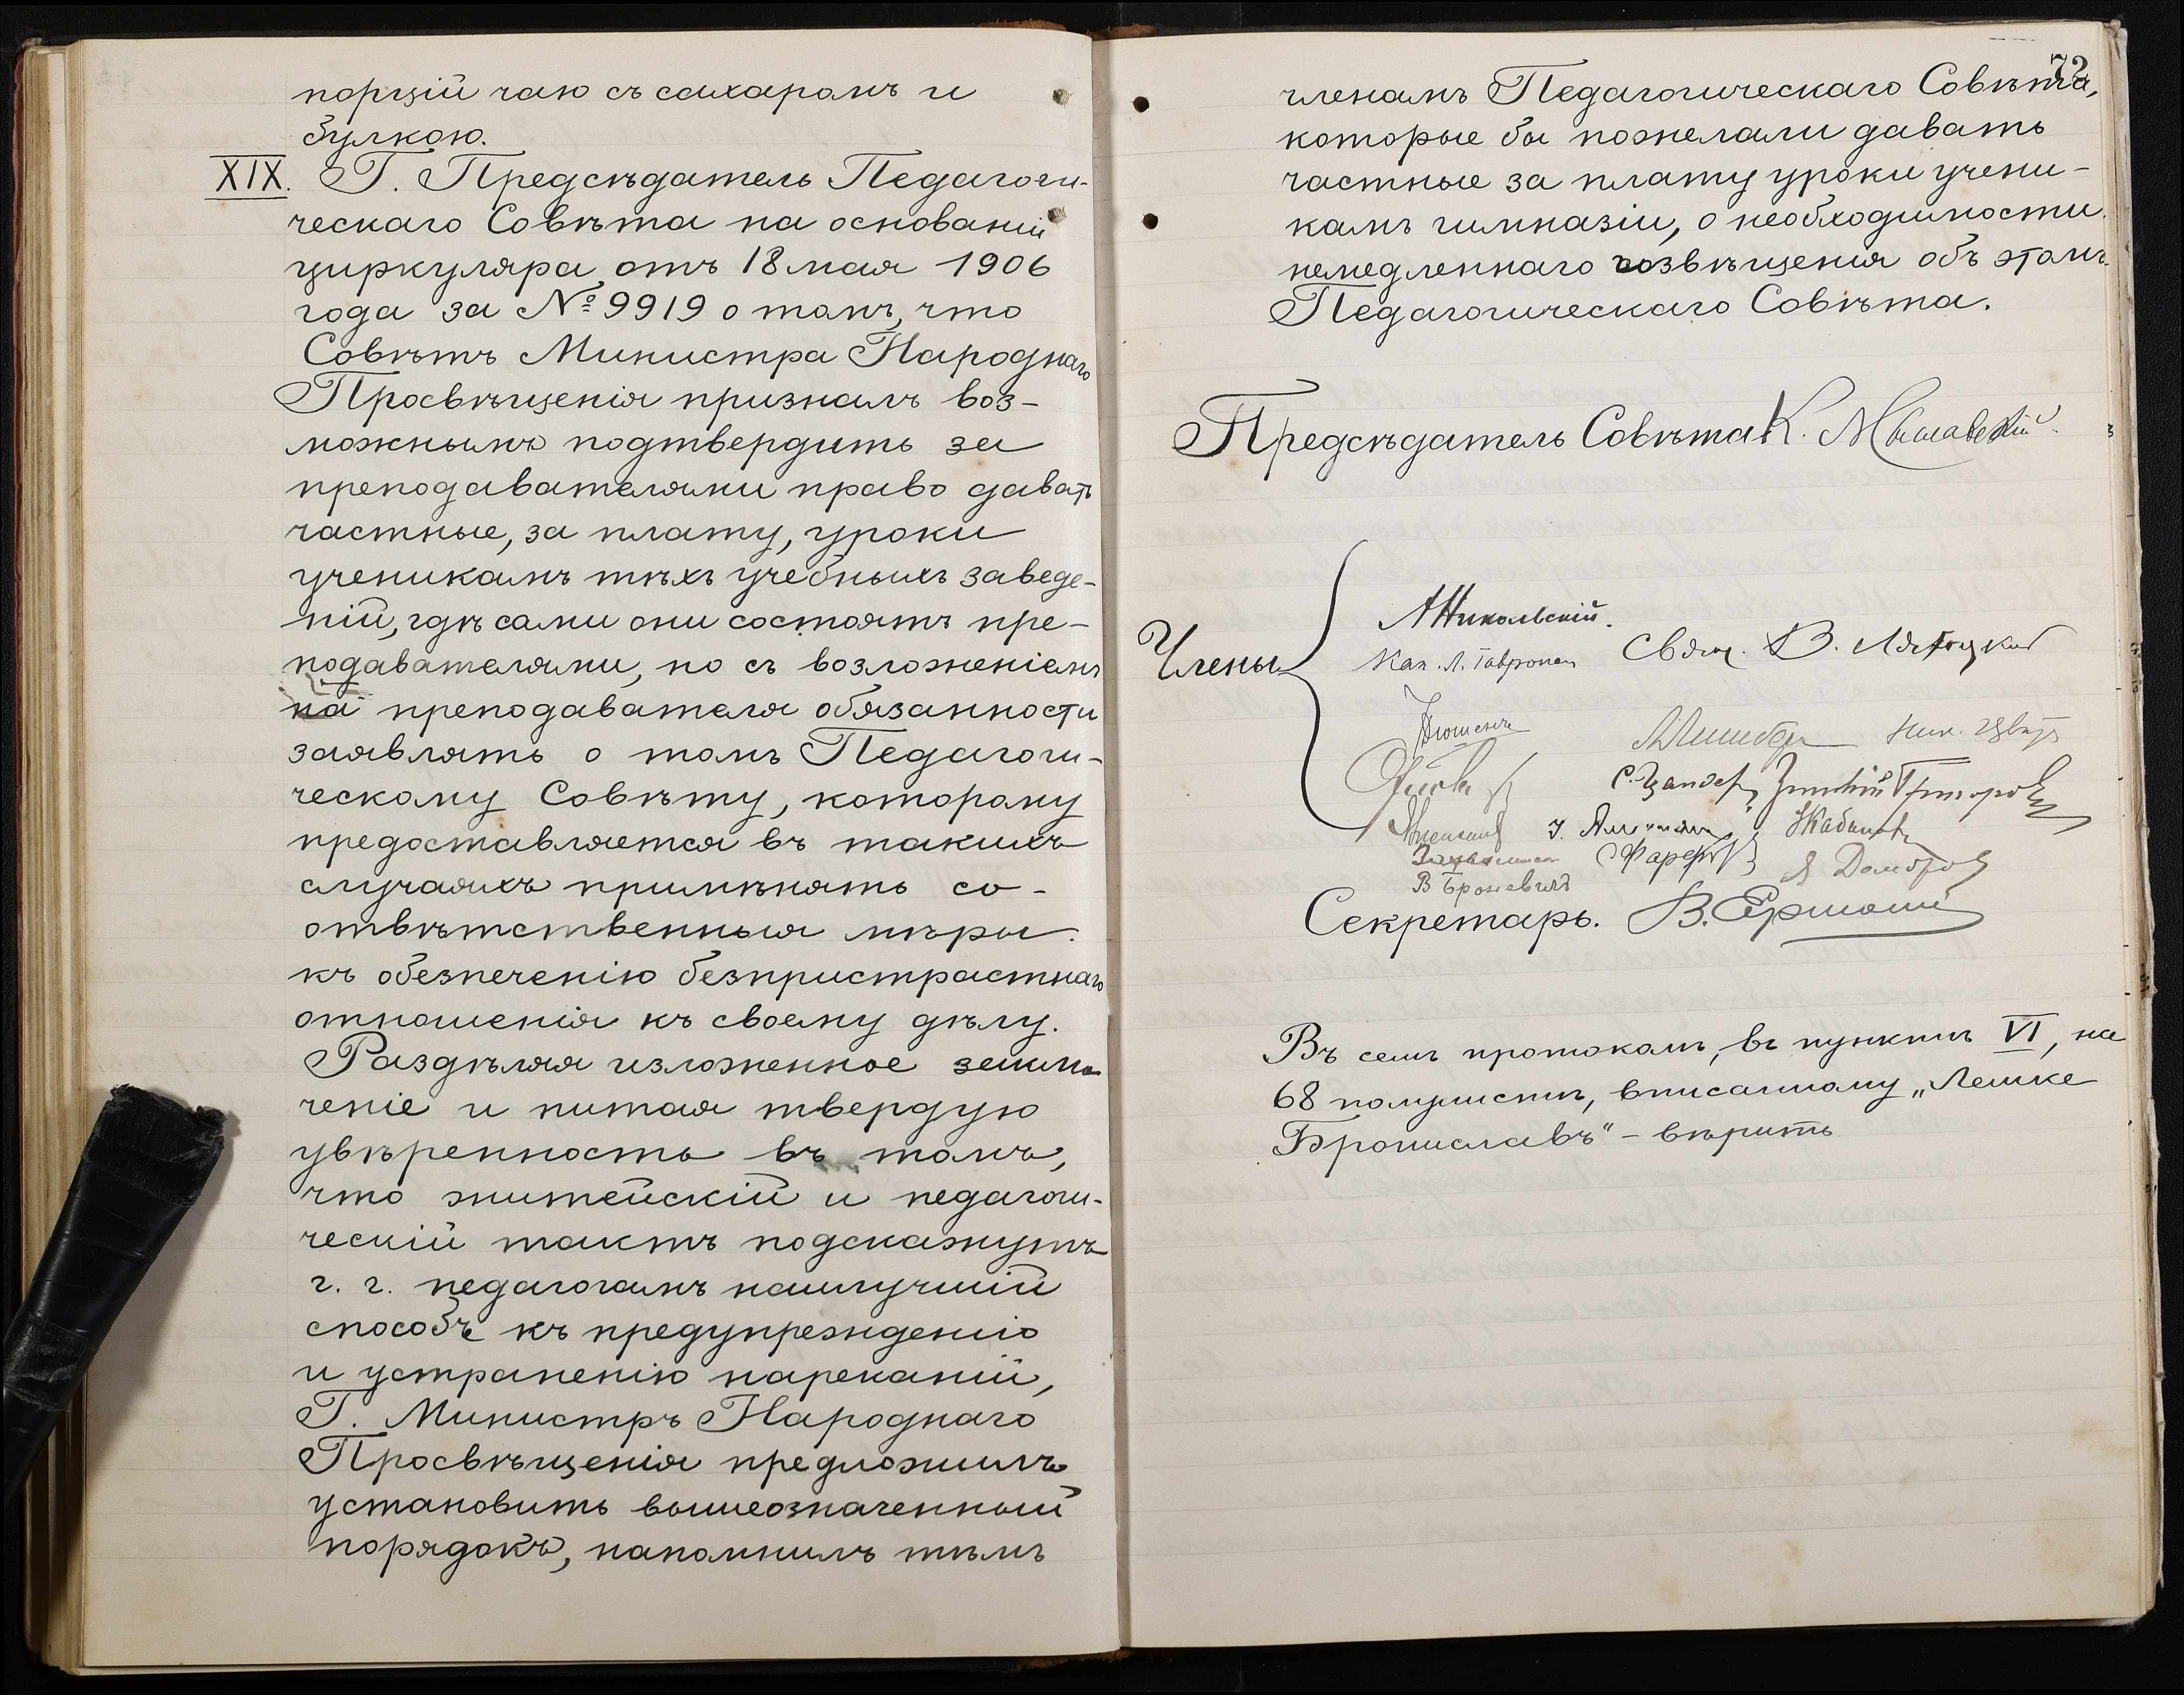 порцій чаю съ сахаромъ и
булкою.
XIX. Г. Предсѣдатель Педагоги-
ческаго Совѣта на основаніи
циркуляра отъ 18 мая 1906
года за № 9919 о томъ, что
Совѣтъ Министра Народнаго
Просвѣщенія призналъ воз-
можнымъ подтвердить за
преподавателями право давать
частные, за плату, уроки
ученикамъ тѣхъ учебныхъ заведе-
ній, гдѣ сами они состоятъ пре-
подавателями, но съ возложеніемъ
на преподавателя обязанности
заявлять о томъ Педагоги-
ческому Совѣту, которому
предоставляется въ такихъ
случаяхъ примѣнять со-
отвѣтственныя мѣры
къ обезпеченію безпристрастнаго
отношенія къ своему дѣлу.
Раздѣляя изложенное заклю-
ченіе и питая твердую
увѣренность въ томъ,
что житейскій и педагоги-
ческій тактъ подскажутъ
г. г. педагогамъ наилучшій
способъ къ предупрежденію
и устраненію нареканій,
Г. Министръ Народнаго
Просвѣщенія предложилъ
установить вышеозначенный
порядокъ, напомнилъ тѣмъ
72
членамъ Педагогическаго Совѣта,
которые бы пожелали давать
частные за плату уроки учени-
камъ гимназіи, о необходимости
немедленнаго возвѣщенія объ этомъ
Педагогическаго Совѣта.
Предсѣдатель Совѣта К.
Члены
А Никольскій.
Свящ. В.
С. Цандеръ
В Броневичъ
Секретарь. В.
Въ семъ протоколѣ, въ пунктѣ VI, на
68 полулистѣ, вписанному „Лешке
Брониславъ" - вѣрить